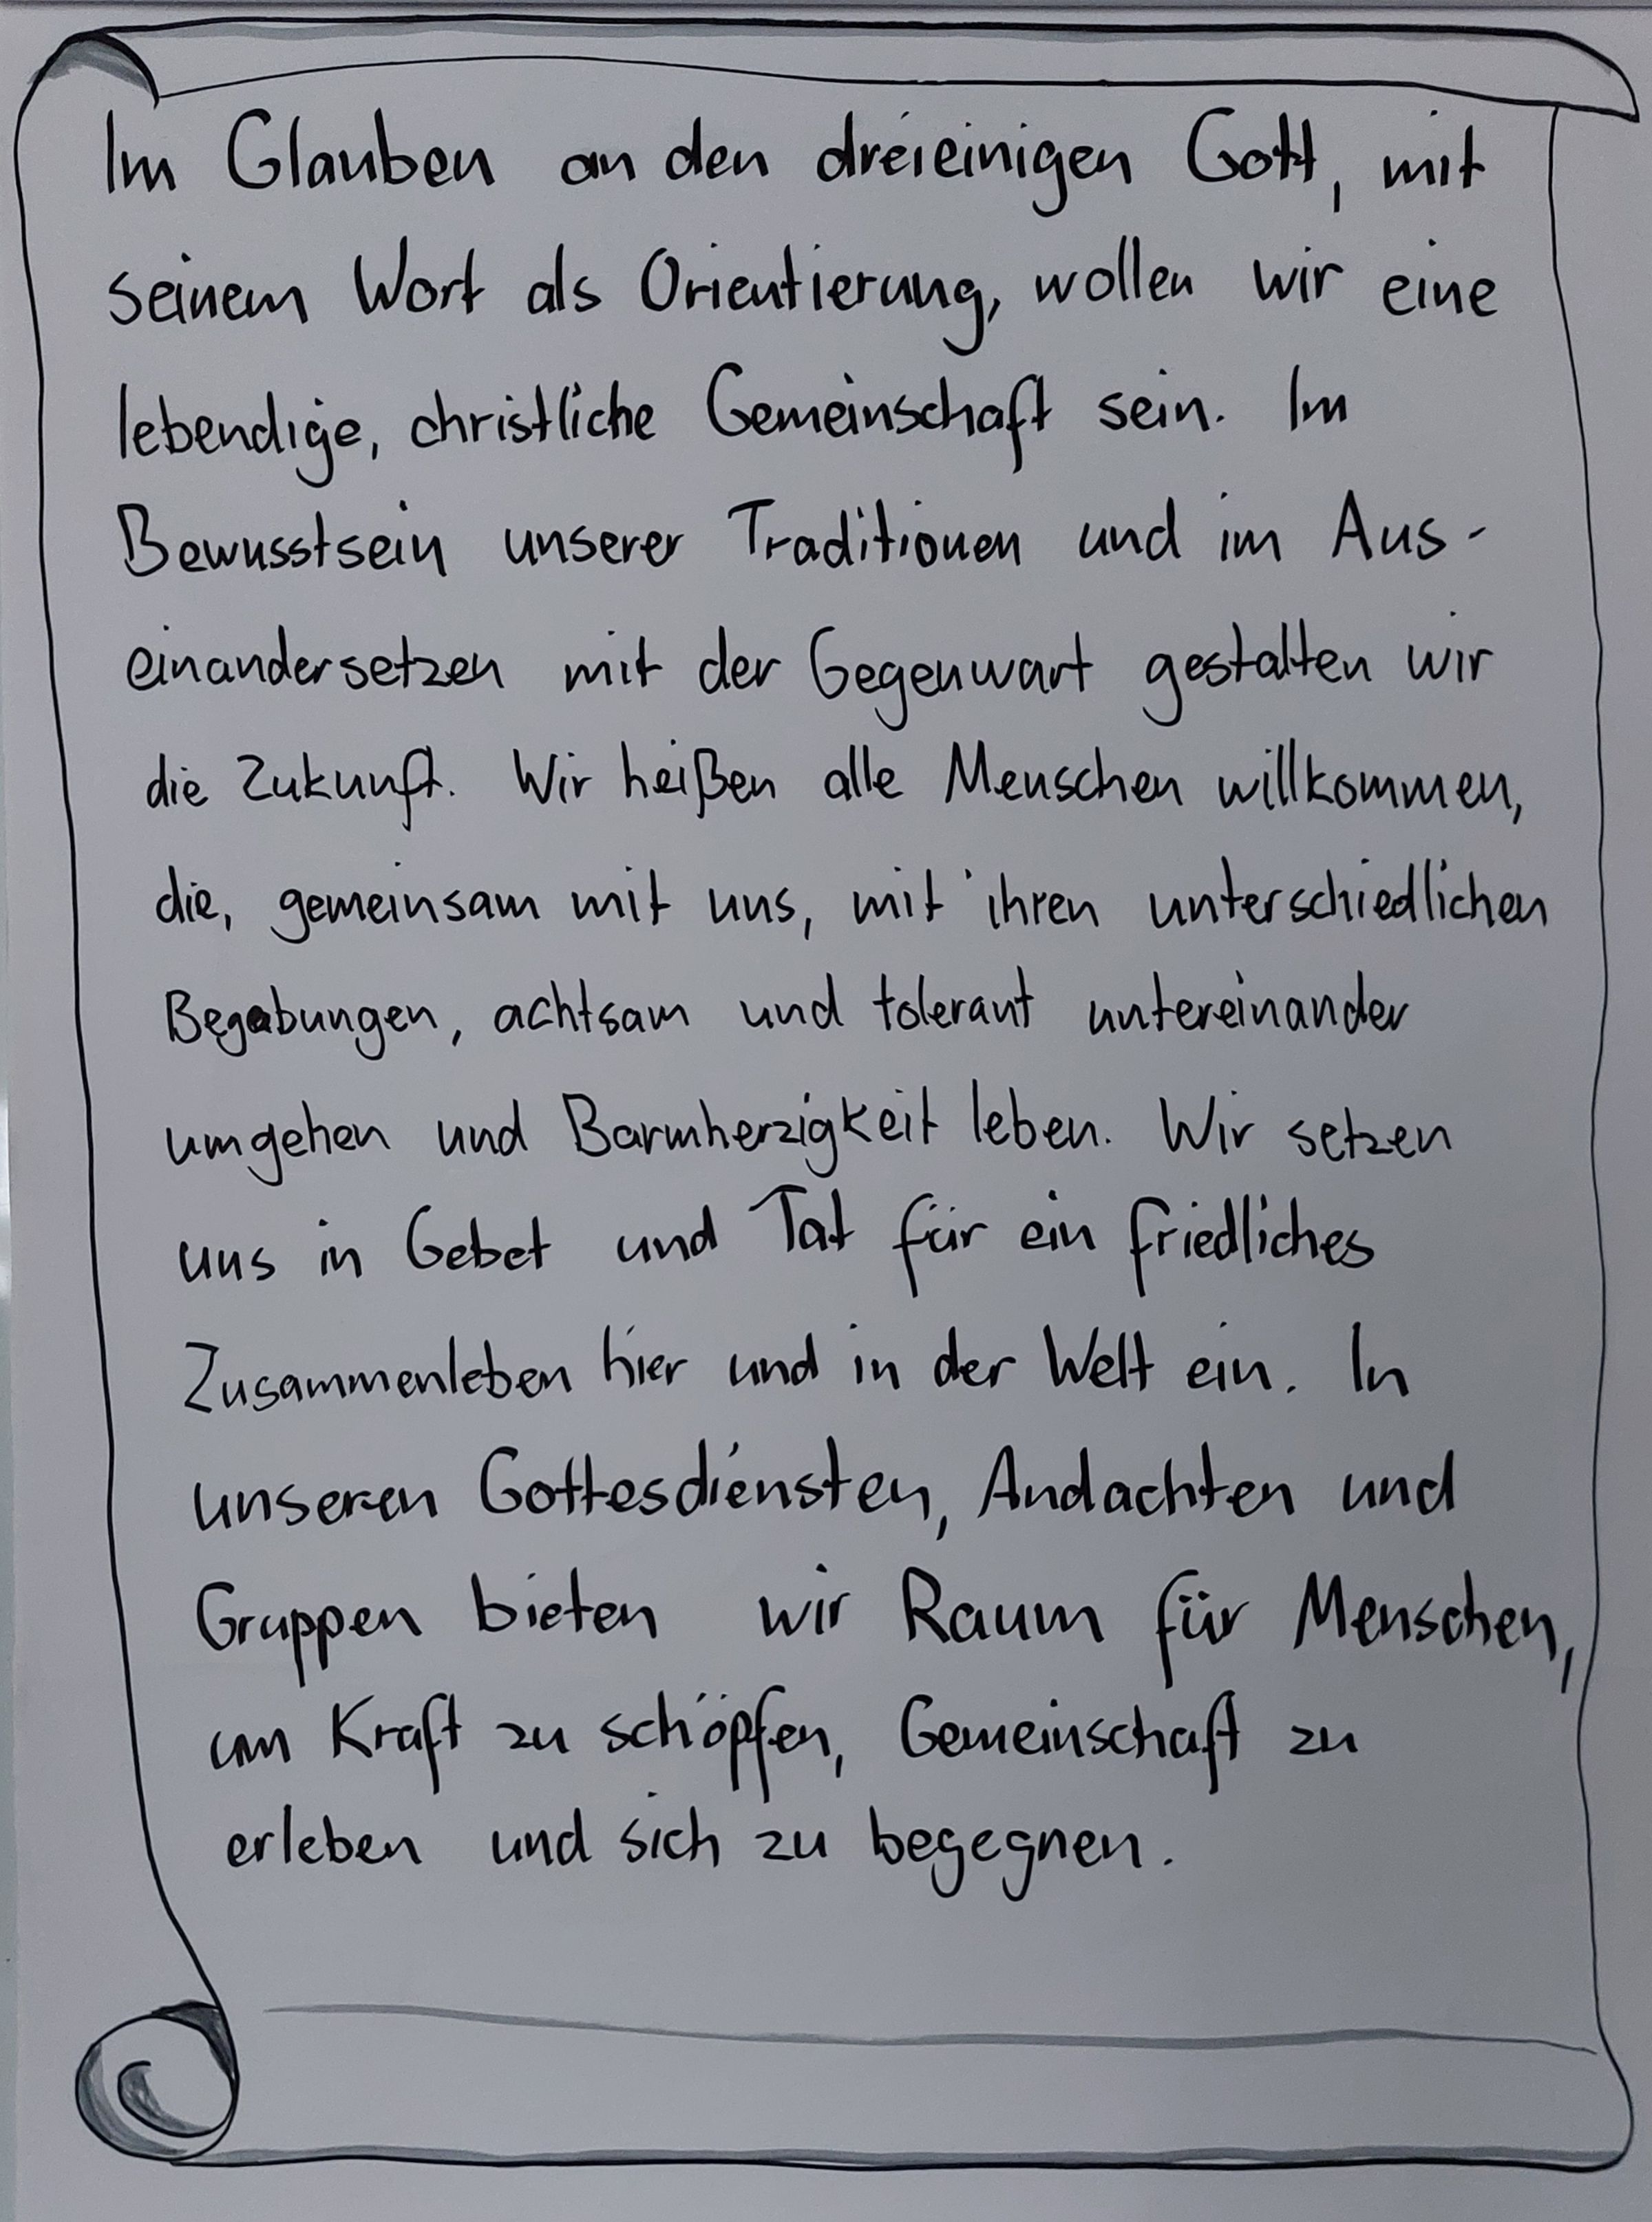 Im Glauben an den dreieinigen Gott, mit
seinem Wort als Orientierung, wollen wir eine
lebendige, christliche Gemeinschaft sein. Im
Bewusstsein unserer Traditionen und im Aus-
einandersetzen mit der Gegenwart gestalten wir
die Zukunft. Wir heißen alle Menschen willkommen,
die, gemeinsam mit uns, mit ihren unterschiedlichen
Begabungen, achtsam und tolerant untereinander
umgehen und Barmherzigkeit leben. Wir setzen
uns in Gebet und Tat für ein friedliches
Zusammenleben hier und in der Welt ein. In
unseren Gottesdiensten, Andachten und
Gruppen bieten wir Raum für Menschen,
um Kraft zu schöpfen, Gemeinschaft zu
erleben und sich zu begegnen.